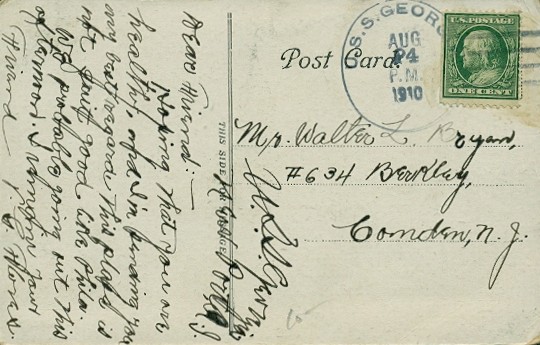 Post Card
U.S.S. GEORG
AUG
24
P.M.
1910
U.S. POSTAGE
ONE CENT
THIS SIDE FOR
Mr. Walter L. Bryan,
#634 Berkley,
Comden, N. J.
Dear Friend:—
Hoping that you are
healthy, and I'm sending you
my best regard this place is
not quit good like Phila.
We probably going out this
I remain your
Friend
U.S.S. Georgia